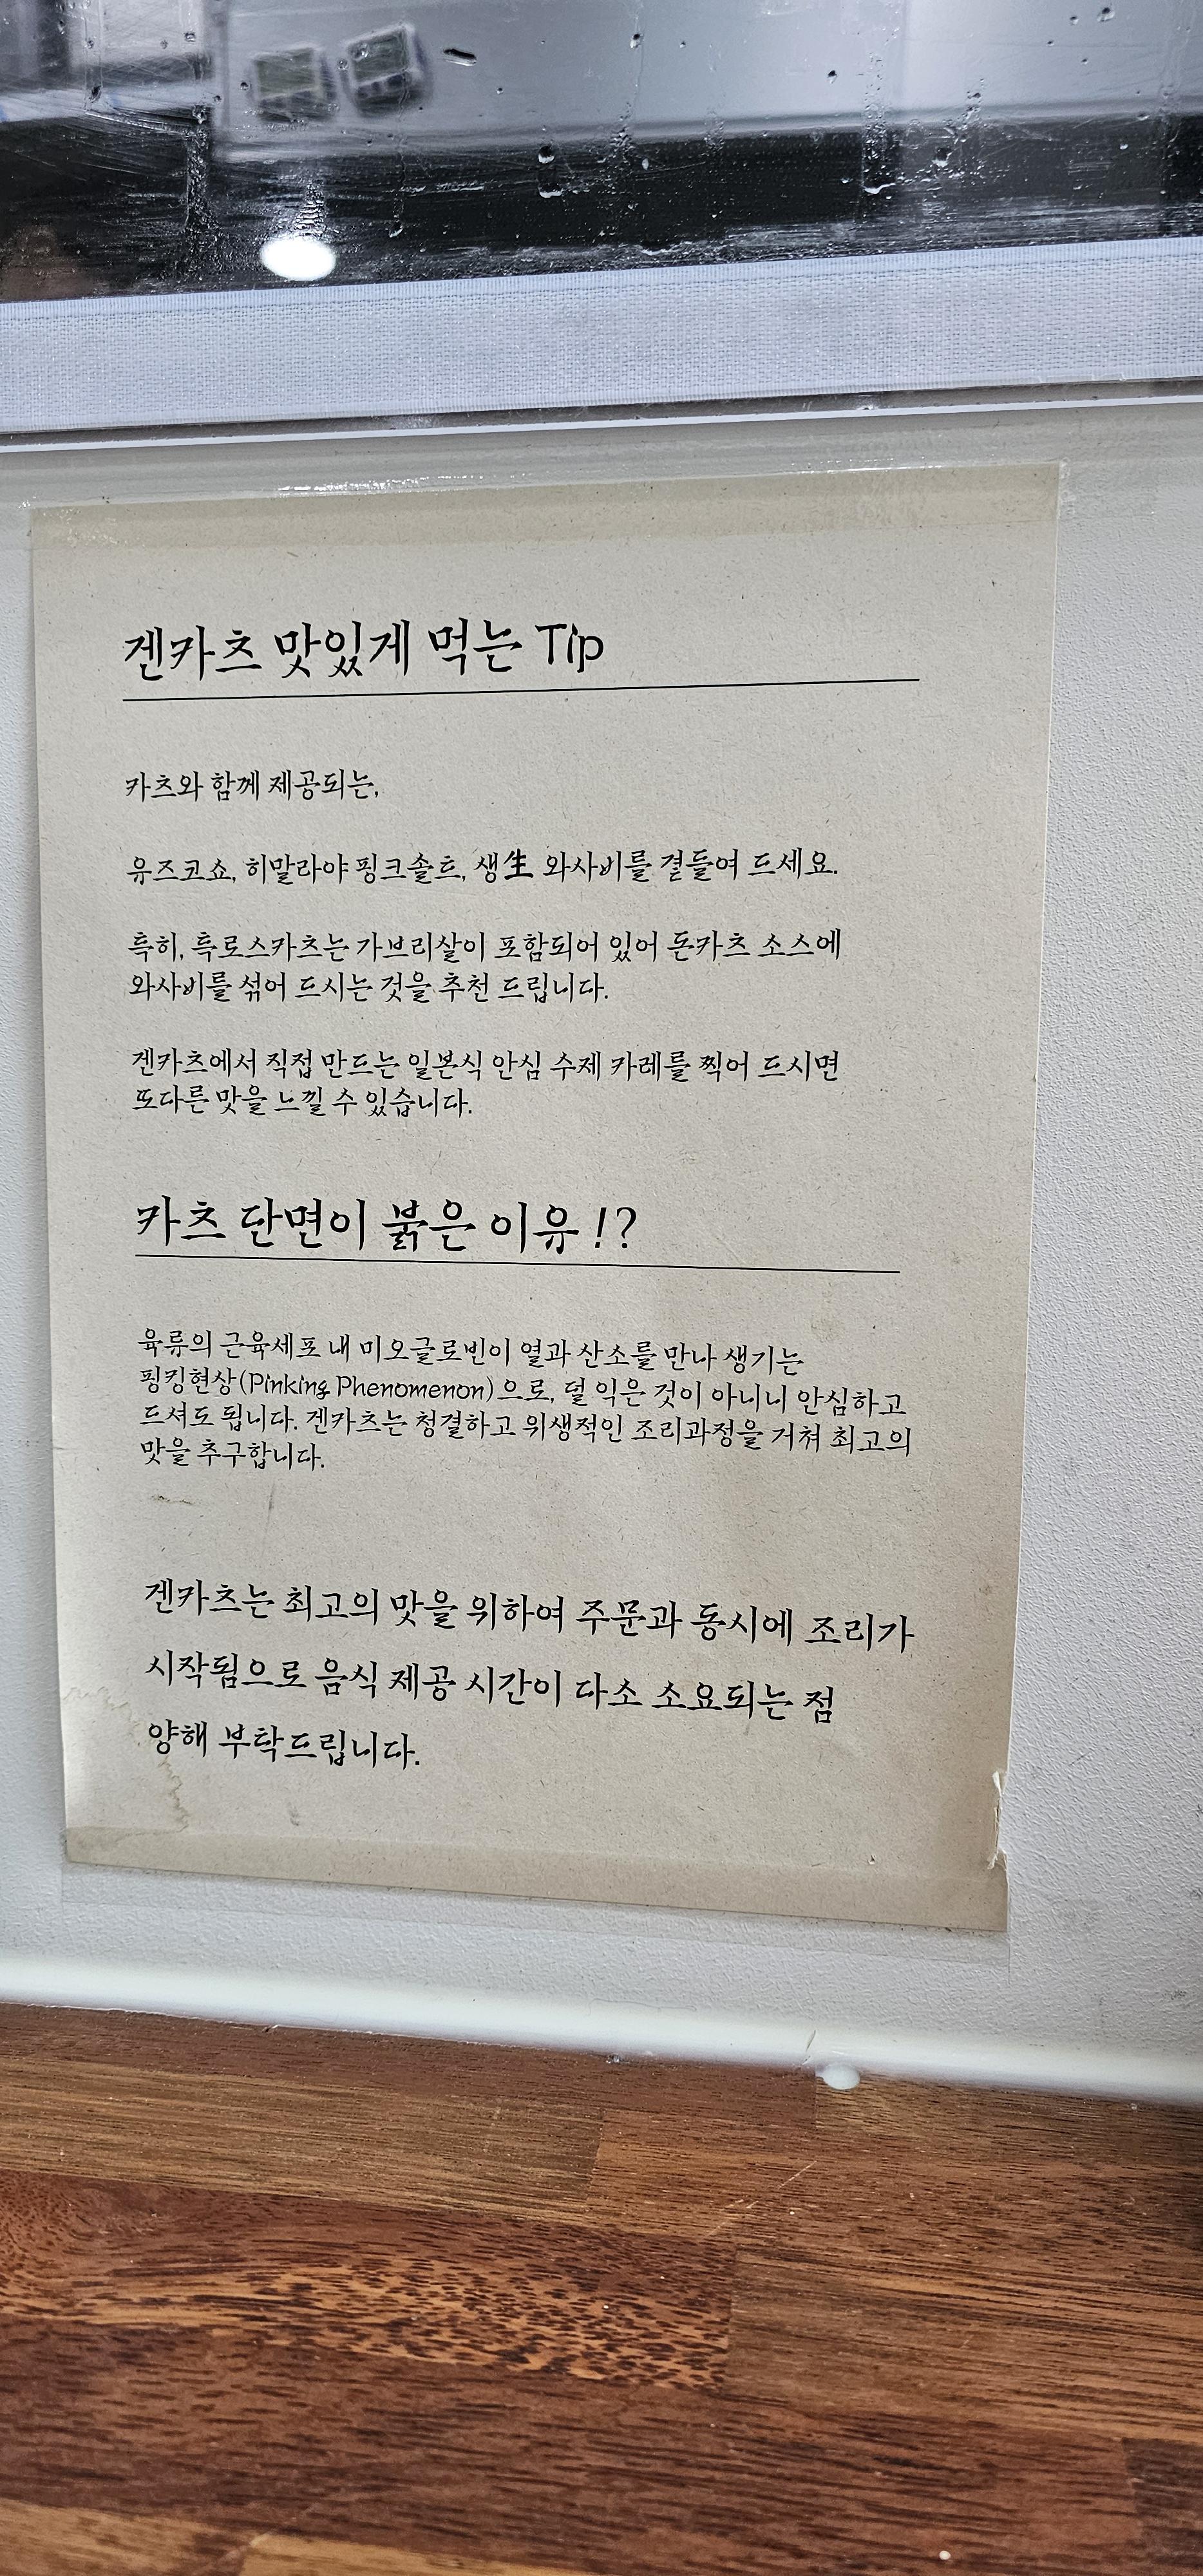 겐카츠 맛있게 먹는 Tip
카츠와 함께 제공되는,
유즈코쇼, 히말라야 핑크솔트, 생生 와사비를 곁들여 드세요.
특히, 특로스카츠는 가브리살이 포함되어 있어 돈카츠 소스에
와사비를 섞어 드시는 것을 추천 드립니다.
겐카츠에서 직접 만드는 일본식 안심 수제 카레를 찍어 드시면
또다른 맛을 느낄 수 있습니다.
카츠 단면이 붉은 이유!?
육류의 근육세포 내 미오글로빈이 열과 산소를 만나 생기는
핑킹현상(Pinking Phenomenon)으로, 덜 익은 것이 아니니 안심하고
드셔도 됩니다. 겐카츠는 청결하고 위생적인 조리과정을 거쳐 최고의
맛을 추구합니다.
겐카츠는 최고의 맛을 위하여 주문과 동시에 조리가
시작됨으로 음식 제공 시간이 다소 소요되는 점
양해 부탁드립니다.